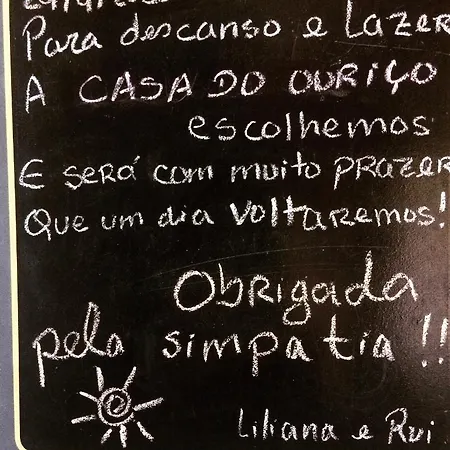 Para descanso e Lazer
A CASA DO OURIÇO
escolhemos
E será com muito PRAZER
Que um dia Voltaremos!
Obrigada
pela simpatia!!
Liliana e Rui